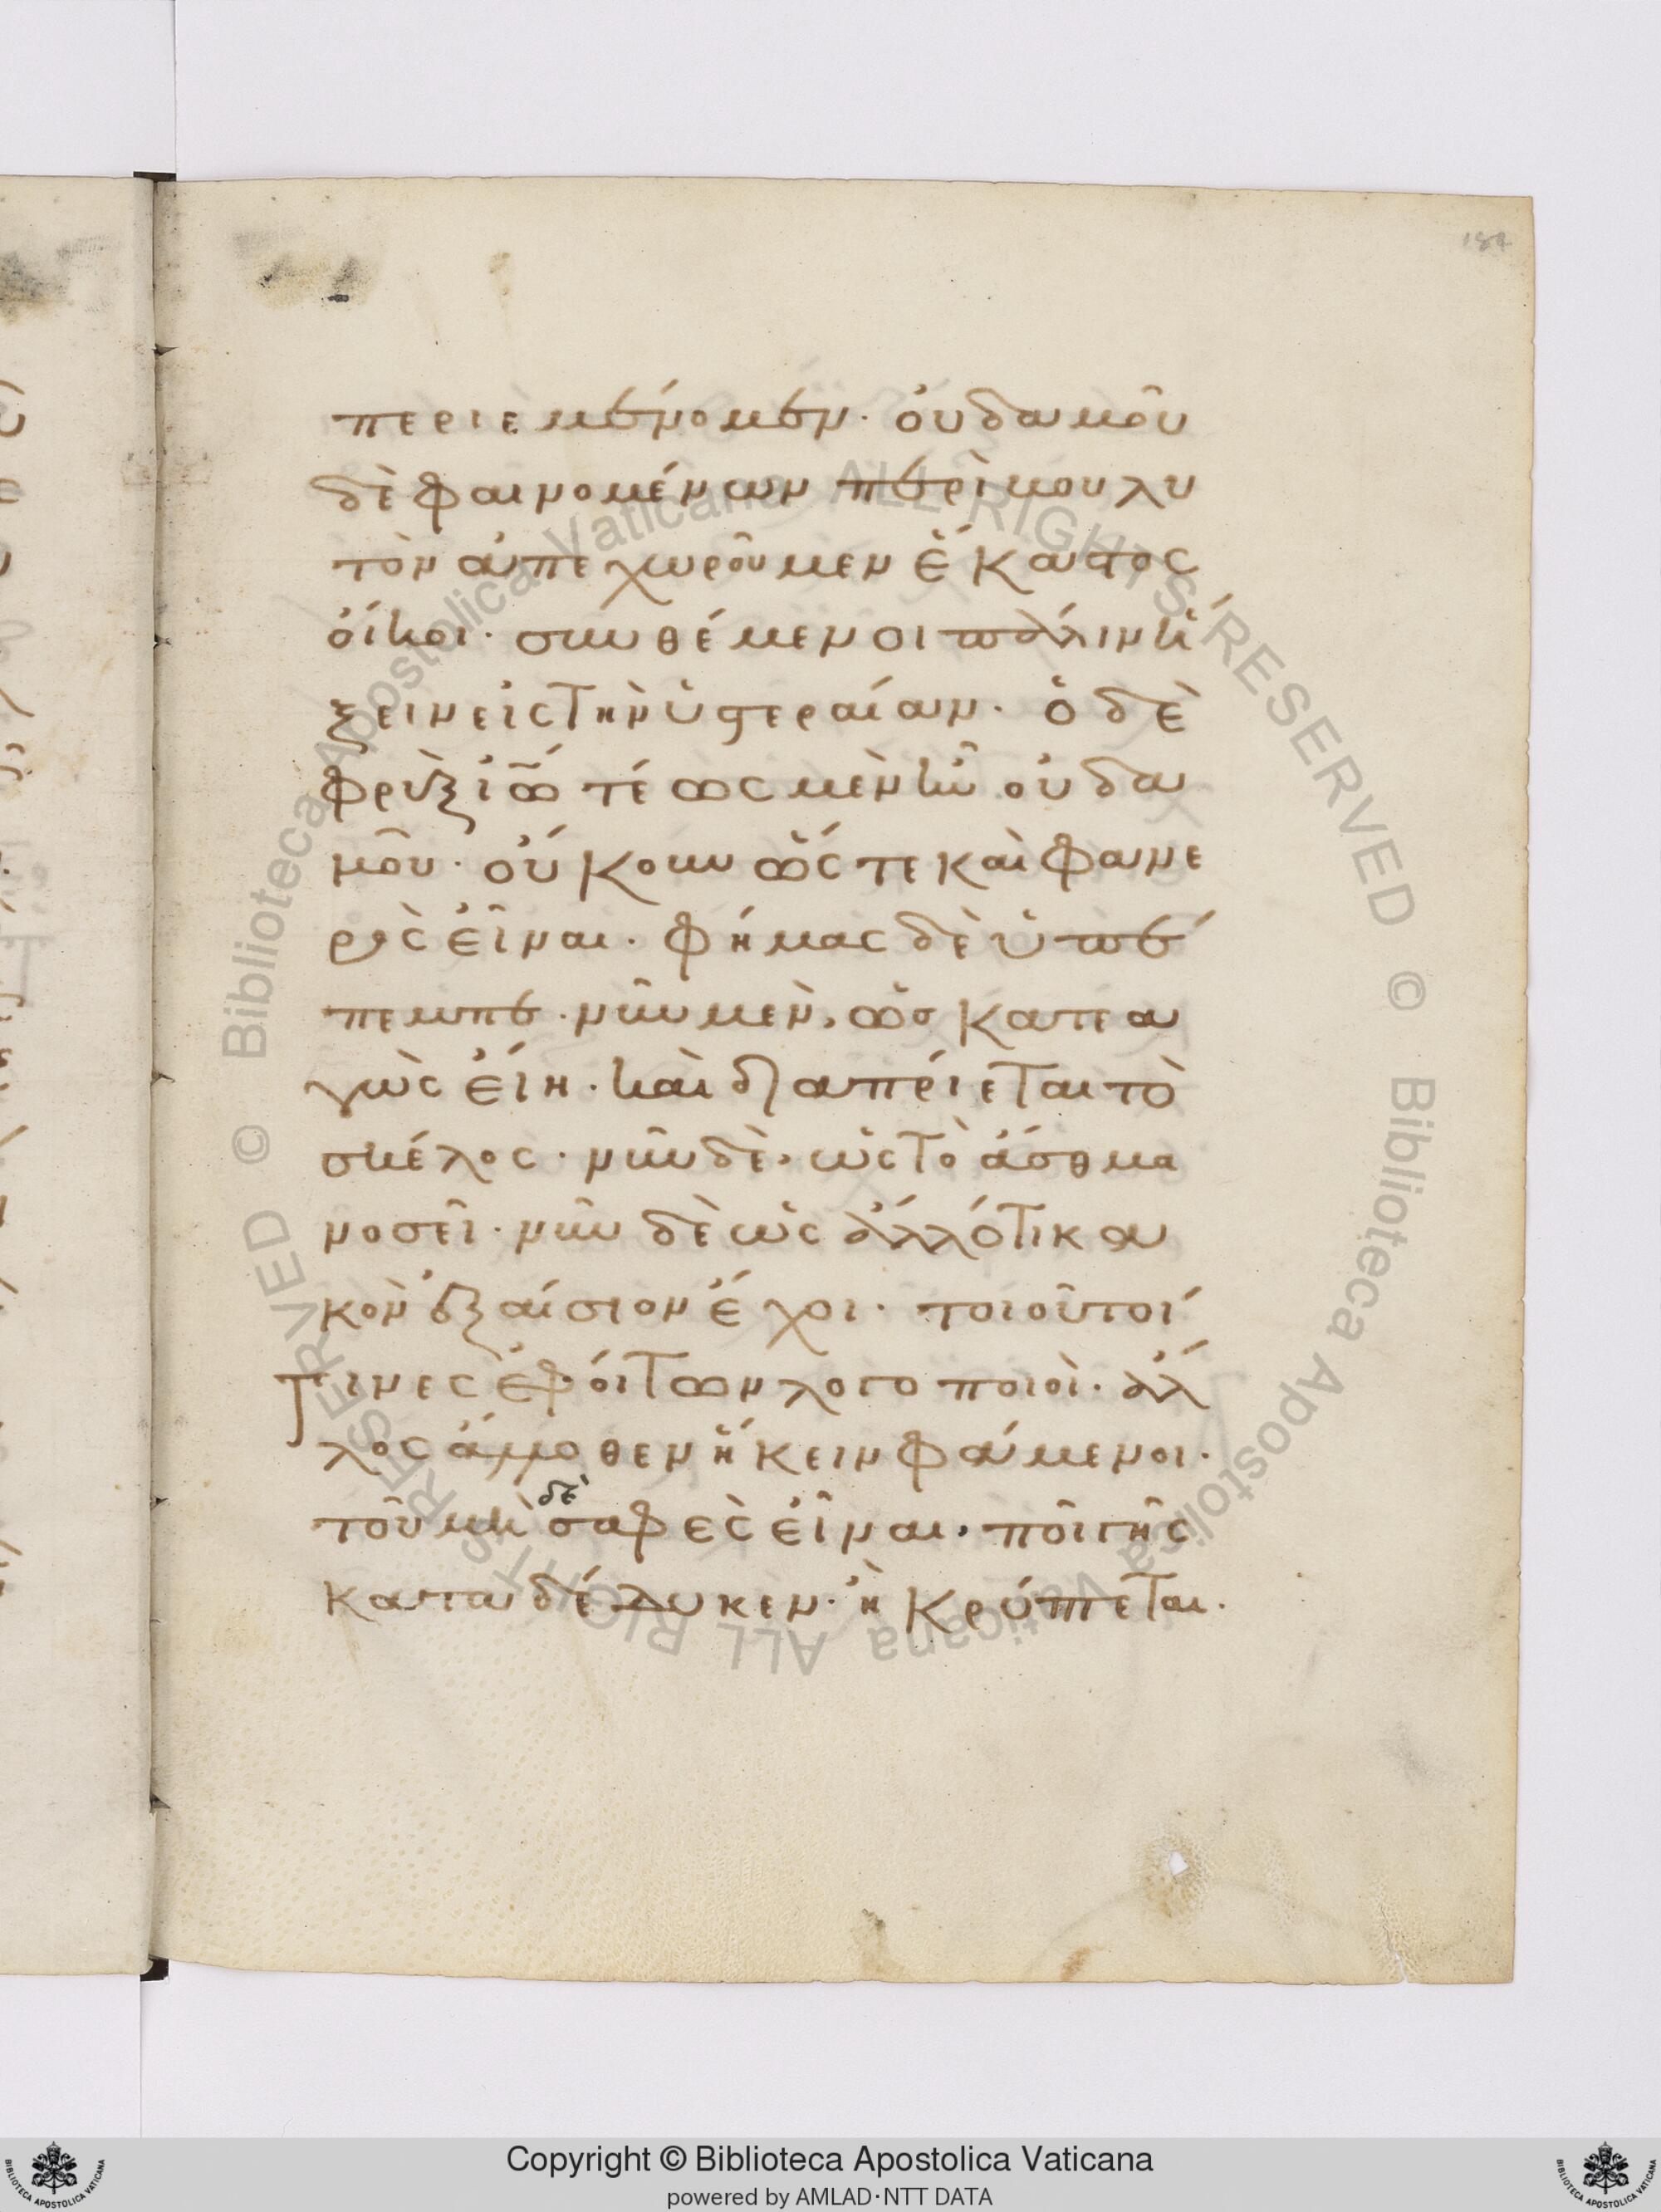 184
περιεμένομεν. οὐδαμοῦ
δὲ φαινομένων περὶ βουλυ
τὸν ἀπεχωροῦμεν ἕκαστος
οἴκοι. συνθέμενοι πάλιν ἥ
ξειν εἰς τὴν ὑστεραίαν. ὁ δὲ
φρυξὶ τῶ τέως μὲν ἦν οὐδα
μοῦ. οὔκουν ὥς τε καὶ φανε
ρὸς εἶναι. φήμας δὲ ὑπέ
πεμπε. νῦν μὲν, ὡς κατεα
γὼς εἴη. καὶ διαπρίεται τὸ
σκέλος. νῦν δὲ, ὡς τὸ ἆσθμα
νοσεῖ. νῦν δὲ ὡς ἄλλό τι κα
κὸν ἐξαίσιον ἔχοι. τοιοῦτοί
τινες ἐφοίτων λογοποιοὶ. ἄλ
λος ἄμοθεν ἥκειν φάμενοι.
τοῦ μὴ δὲ σαφὲς εἶναι. ποῖ γῆς
καταδέδυκεν. ἢ κρύπτεται.
Copyright © Biblioteca Apostolica Vaticana
powered by AMLAD·NTT DATA
© Biblioteca Apostolica Vaticana ALL RIGHTS RESERVED
© Biblioteca Apostolica Vaticana ALL RIGHTS RESERVED
BIBLIOTECA APOSTOLICA VATICANA
BIBLIOTECA APOSTOLICA VATICANA